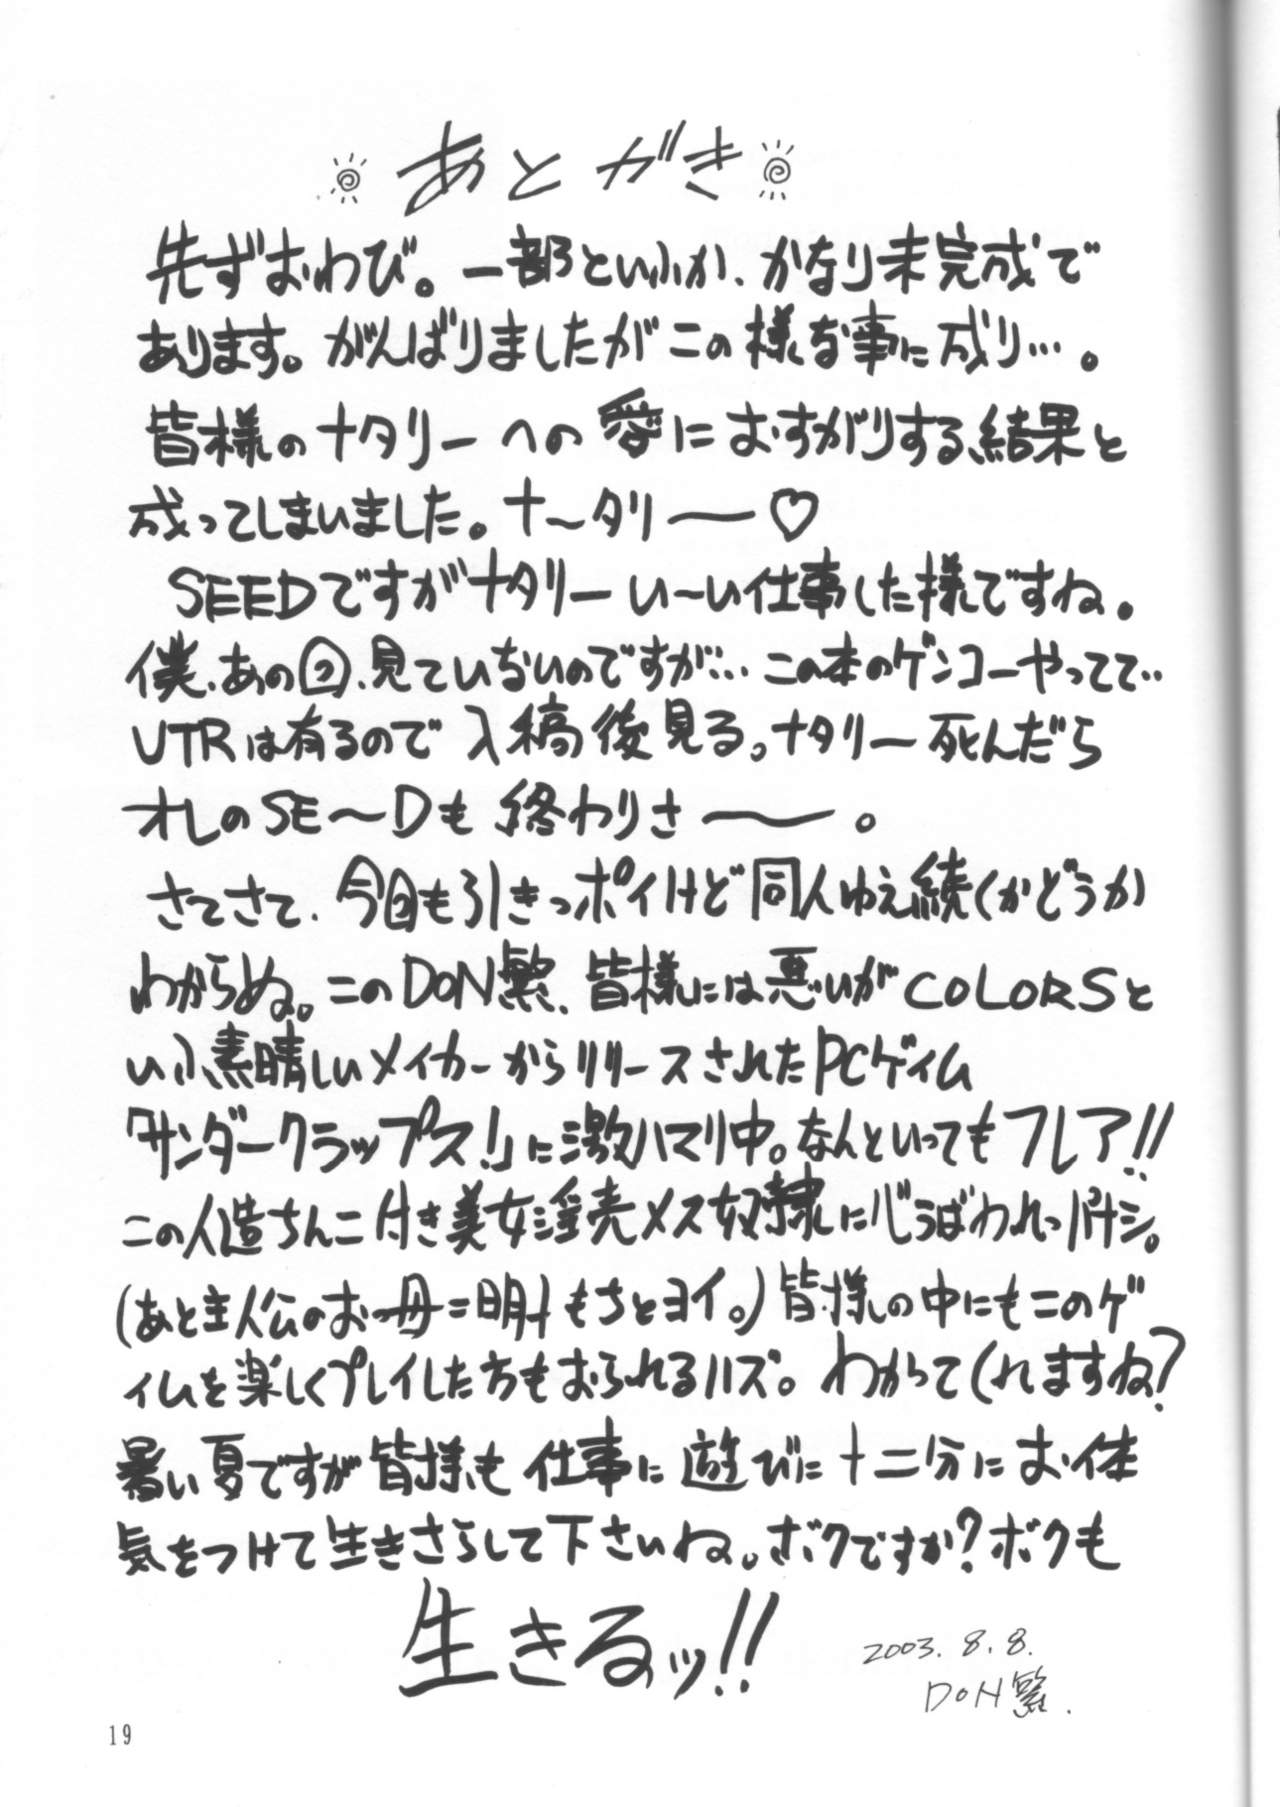 あとがき
先ずおわび。一部といふか、かなり未完成で
あります。がんばりましたがこの様な事に成り…。
皆様のナタリーへの愛におすがりする結果と
成ってしまいました。ナ〜タリー♡
SEEDですがナタリーい〜い仕事した様ですね。
僕、あの回、見ていないのですが… この本のゲンコーやってて‥
VTRは有るので入稿後見る。ナタリー死んだら
オレのSE〜Dも終わりさ〜。
さてさて、今回も引きっポイけど同人ゆえ続くかどうか
わからぬ。このDON繁、皆様には悪いがCOLORSと
いふ素晴しいメイカーからリリースされたPCゲイム
「サンダークラップス!」に激ハマり中。なんといってもフレア!!
この人造ちんこ付き美女淫売メス奴隷に心うばわれっパナシ。
(あとは主人公のお母=明 もちとヨイ。)皆様の中にもこのゲ
イムを楽しくプレイした方もおられるハズ。わかってくれますね?
暑い夏ですが皆様も仕事に遊びに十二分にお体
気をつけて生きさらして下さいね。ボクですか?ボクも
生きるッ!!
2003.8.8.
DON繁.
19